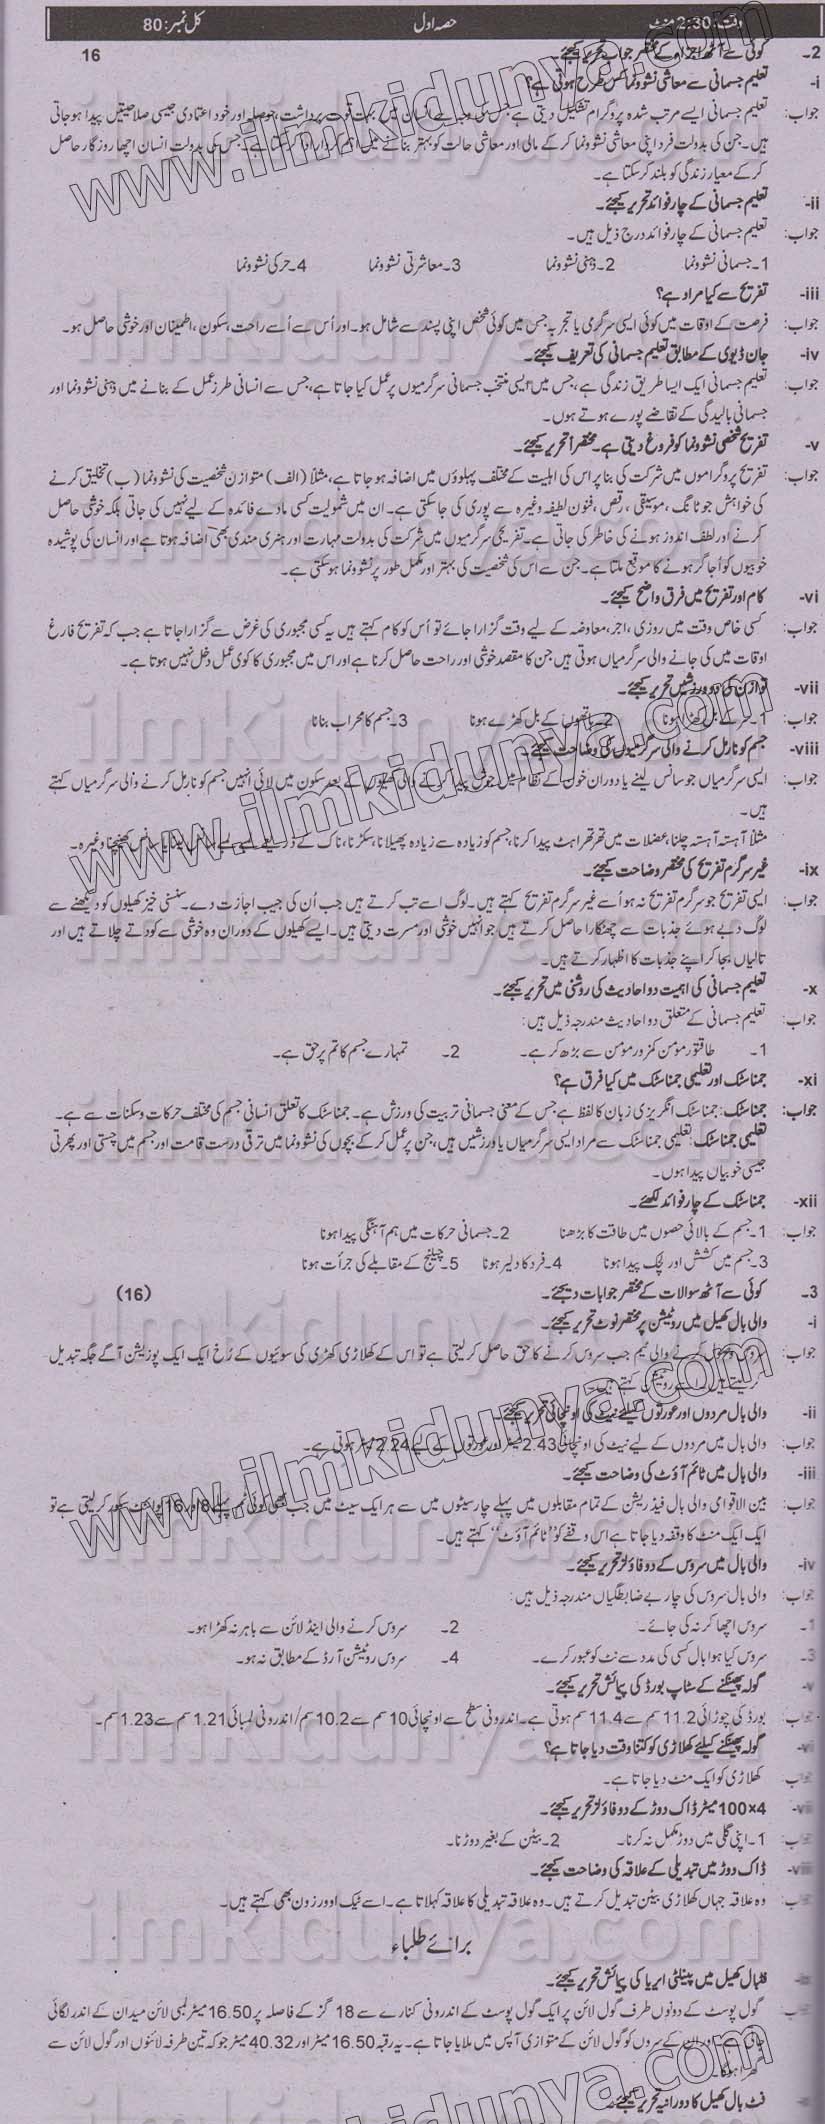 وقت: 2:30 منٹ حصہ اول کل نمبر: 80
2۔ کوئی سے آٹھ اجزاء کے مختصر جواب تحریر کیجئے۔ 16
i- تعلیم جسمانی سے معاشی نشوونما کس طرح ہوتی ہے؟
جواب: تعلیم جسمانی ایسے مرتب شدہ پروگرام تشکیل دیتی ہے جس کی وجہ سے انسان میں ہمت قوت برداشت، حوصلہ اور خود اعتمادی جیسی صلاحیتیں پیدا ہو جاتی
ہیں۔ جن کی بدولت فرد اپنی معاشی نشوونما کر کے مالی اور معاشی حالت کو بہتر بنانے میں اہم کردار ادا کر سکتا ہے۔ جس کی بدولت انسان اچھا روزگار حاصل
کر کے معیار زندگی کو بلند کر سکتا ہے۔
ii- تعلیم جسمانی کے چار فوائد تحریر کیجئے۔
جواب: تعلیم جسمانی کے چار فوائد درج ذیل ہیں۔
1۔ جسمانی نشوونما 2۔ ذہنی نشوونما 3۔ معاشرتی نشوونما 4۔ حرکی نشوونما
iii- تفریح سے کیا مراد ہے؟
جواب: فرصت کے اوقات میں کوئی ایسی سرگرمی یا تجربہ جس میں کوئی شخص اپنی پسند سے شامل ہو۔ اور اُس سے اُسے راحت، سکون، اطمینان اور خوشی حاصل ہو۔
iv- جان ڈیوی کے مطابق تعلیم جسمانی کی تعریف کیجئے۔
جواب: تعلیم جسمانی ایک ایسا طریق زندگی ہے، جس میں ایسی منتخب جسمانی سرگرمیوں پر عمل کیا جاتا ہے، جس سے انسانی طرز عمل کے بنانے میں ذہنی نشوونما اور
جسمانی بالیدگی کے تقاضے پورے ہوتے ہوں۔
v- تفریح شخصی نشوونما کو فروغ دیتی ہے۔ مختصراً تحریر کیجئے۔
جواب: تفریح پروگراموں میں شرکت کی بنا پر اس کی اہلیت کے مختلف پہلوؤں میں اضافہ ہو جاتا ہے، مثلاً (الف) متوازن شخصیت کی نشوونما (ب) تخلیق کرنے
کی خواہش جو ٹانگ، موسیقی، رقص، فنون لطیفہ وغیرہ سے پوری کی جاسکتی ہے۔ ان میں شمولیت کسی مادے فائدہ کے لیے نہیں کی جاتی بلکہ خوشی حاصل
کرنے اور لطف اندوز ہونے کی خاطر کی جاتی ہے۔ تفریحی سرگرمیوں میں شرکت کی بدولت مہارت اور ہنری مندی بھی اضافہ ہوتا ہے اور انسان کی پوشیدہ
خوبیوں کو اُجاگر ہونے کا موقع ملتا ہے۔ جن سے اس کی شخصیت کی بہتر اور مکمل طور پر نشوونما ہو سکتی ہے۔
vi- کام اور تفریح میں فرق واضح کیجئے۔
جواب: کسی خاص وقت میں روزی، اجر، معاوضہ کے لیے وقت گزارا جائے تو اُس کو کام کہتے ہیں یہ کسی مجبوری کی غرض سے گزارا جاتا ہے جب کہ تفریح فارغ
اوقات میں کی جانے والی سرگرمیاں ہوتی ہیں جن کا مقصد خوشی اور راحت حاصل کرنا ہے اور اس میں مجبوری کا کوئی عمل دخل نہیں ہوتا ہے۔
vii- توازن کی دو ورزشیں تحریر کیجئے۔
جواب: 1۔ سر کے بل کھڑا ہونا 2۔ ہاتھوں کے بل کھڑے ہونا 3۔ جسم کا محراب بنانا
viii- جسم کو نارمل کرنے والی سرگرمیوں کی وضاحت کیجئے۔
جواب: ایسی سرگرمیاں جو سانس لینے یا دوران خون کے نظام میں جوش پیدا کرنے والی کھیلوں کے بعد سکون میں لائی انہیں جسم کو نارمل کرنے والی سرگرمیاں کہتے
ہیں۔
مثلاً آہستہ آہستہ چلنا، عضلات میں تھرتھراہٹ پیدا کرنا، جسم کو زیادہ سے زیادہ پھیلانا، سکڑنا، ناک کے ذریعے لمبے لمبے سانس لینا یا سانس کھینچنا وغیرہ۔
ix- غیر سرگرم تفریح کی مختصر وضاحت کیجئے۔
جواب: ایسی تفریح جو سرگرم تفریح نہ ہو اُسے غیر سرگرم تفریح کہتے ہیں۔ لوگ اسے تب کرتے ہیں جب اُن کی جیب اجازت دے۔ سنسنی خیز کھیلوں کو دیکھنے سے
لوگ دبے ہوئے جذبات سے چھٹکارا حاصل کرتے ہیں جو انہیں خوشی اور مسرت دیتی ہیں۔ ایسے کھیلوں کے دوران وہ خوشی سے کودتے چلاتے ہیں اور
تالیاں بجا کر اپنے جذبات کا اظہار کرتے ہیں۔
x- تعلیم جسمانی کی اہمیت دو احادیث کی روشنی میں تحریر کیجئے۔
جواب: تعلیم جسمانی کے متعلق دو احادیث مندرجہ ذیل ہیں:
1۔ طاقتور مومن کمزور مومن سے بڑھ کر ہے۔ 2۔ تمہارے جسم کا تم پر حق ہے۔
xi- جمناسٹک اور تعلیمی جمناسٹک میں کیا فرق ہے؟
جواب: جمناسٹک: جمناسٹک انگریزی زبان کا لفظ ہے جس کے معنی جسمانی تربیت کی ورزش ہے۔ جمناسٹک کا تعلق انسانی جسم کی مختلف حرکات و سکنات سے ہے۔
تعلیمی جمناسٹک: تعلیمی جمناسٹک سے مراد ایسی سرگرمیاں یا ورزشیں ہیں، جن پر عمل کر کے بچوں کی نشوونما میں ترقی درست قامت اور جسم میں چستی اور پھرتی
جیسی خوبیاں پیدا ہوں۔
xii- جمناسٹک کے چار فوائد لکھئے۔
جواب: 1۔ جسم کے بالائی حصوں میں طاقت کا بڑھنا 2۔ جسمانی حرکات میں ہم آہنگی پیدا ہونا
3۔ جسم میں کشش اور لچک پیدا ہونا 4۔ فرد کا دلیر ہونا 5۔ چیلنج کے مقابلے کی جرأت ہونا
3۔ کوئی سے آٹھ سوالات کے مختصر جوابات دیجئے۔ (16)
i- والی بال کھیل میں روٹیشن پر مختصر نوٹ تحریر کیجئے۔
جواب: سروس وصول کرنے والی ٹیم جب سروس کرنے کا حق حاصل کر لیتی ہے تو اس کے کھلاڑی کھڑی کی سوئیوں کے رُخ ایک ایک پوزیشن آگے جگہ تبدیل
کر لیتے ہیں اسے روٹیشن کہتے ہیں۔
ii- والی بال مردوں اور عورتوں کیلئے نیٹ کی اونچائی تحریر کیجئے۔
جواب: والی بال میں مردوں کے لیے نیٹ کی اونچائی 2.43 میٹر اور عورتوں کے لیے 2.24 میٹر ہوتی ہے۔
iii- والی بال میں ٹائم آؤٹ کی وضاحت کیجئے۔
جواب: بین الاقوامی والی بال فیڈریشن کے تمام مقابلوں میں پہلے چار سیٹوں میں سے ہر ایک سیٹ میں جب بھی کوئی ٹیم پہلے 8 اور 16 پوائنٹ سکور کر لیتی ہے تو
ایک ایک منٹ کا وقفہ دیا جاتا ہے اس وقفے کو ’’ٹائم آؤٹ‘‘ کہتے ہیں۔
iv- والی بال میں سروس کے دو فاؤلز تحریر کیجئے۔
جواب: والی بال سروس کی چار بے ضابطگیاں مندرجہ ذیل ہیں:
1۔ سروس اچھا کر نہ کی جائے۔ 2۔ سروس کرنے والی اینڈ لائن سے باہر نہ کھڑا ہو۔
3۔ سروس کیا ہوا بال کسی کی مدد سے نٹ کو عبور کرے۔ 4۔ سروس روٹیشن آرڈر کے مطابق نہ ہو۔
v- گولہ پھینکنے کے سٹاپ بورڈ کی پیمائش تحریر کیجئے۔
جواب: بورڈ کی چوڑائی 11.2 سم سے 11.4 سم ہوتی ہے۔ اندرونی سطح سے اونچائی 10 سم سے 10.2 سم/ اندرونی لمبائی 1.21 سم سے 1.23 سم۔
vi- گولہ پھینکنے کیلئے کھلاڑی کو کتنا وقت دیا جاتا ہے؟
جواب: کھلاڑی کو ایک منٹ دیا جاتا ہے۔
vii- 100×4 میٹر ڈاک دوڑ کے دو فاؤلز تحریر کیجئے۔
جواب: 1۔ اپنی گلی میں دوڑ مکمل نہ کرنا۔ 2۔ بیٹن کے بغیر دوڑنا۔
viii- ڈاک دوڑ میں تبدیلی کے علاقہ کی وضاحت کیجئے۔
جواب: وہ علاقہ جہاں کھلاڑی بیٹن تبدیل کرتے ہیں۔ وہ علاقہ تبدیلی کا علاقہ کہلاتا ہے۔ اسے ٹیک اوور زون بھی کہتے ہیں۔
برائے طلباء
ix- فٹبال کھیل میں پینلٹی ایریا کی پیمائش تحریر کیجئے۔
جواب: گول پوسٹ کے دونوں طرف گول لائن پر ایک گول پوسٹ کے اندرونی کنارے سے 18 گز کے فاصلہ پر 16.50 میٹر لمبی لائن میدان کے اندر لگائی
جاتی ہے اور ان کے سروں کو گول لائن کے متوازی آپس میں ملایا جاتا ہے۔ یہ رقبہ 16.50 میٹر اور 40.32 میٹر جو کہ تین طرفہ لائنوں اور گول لائن سے
گھرا ہوگا۔
فٹ بال کھیل کا دورانیہ تحریر کیجئے۔
www.ilmkidunya.com